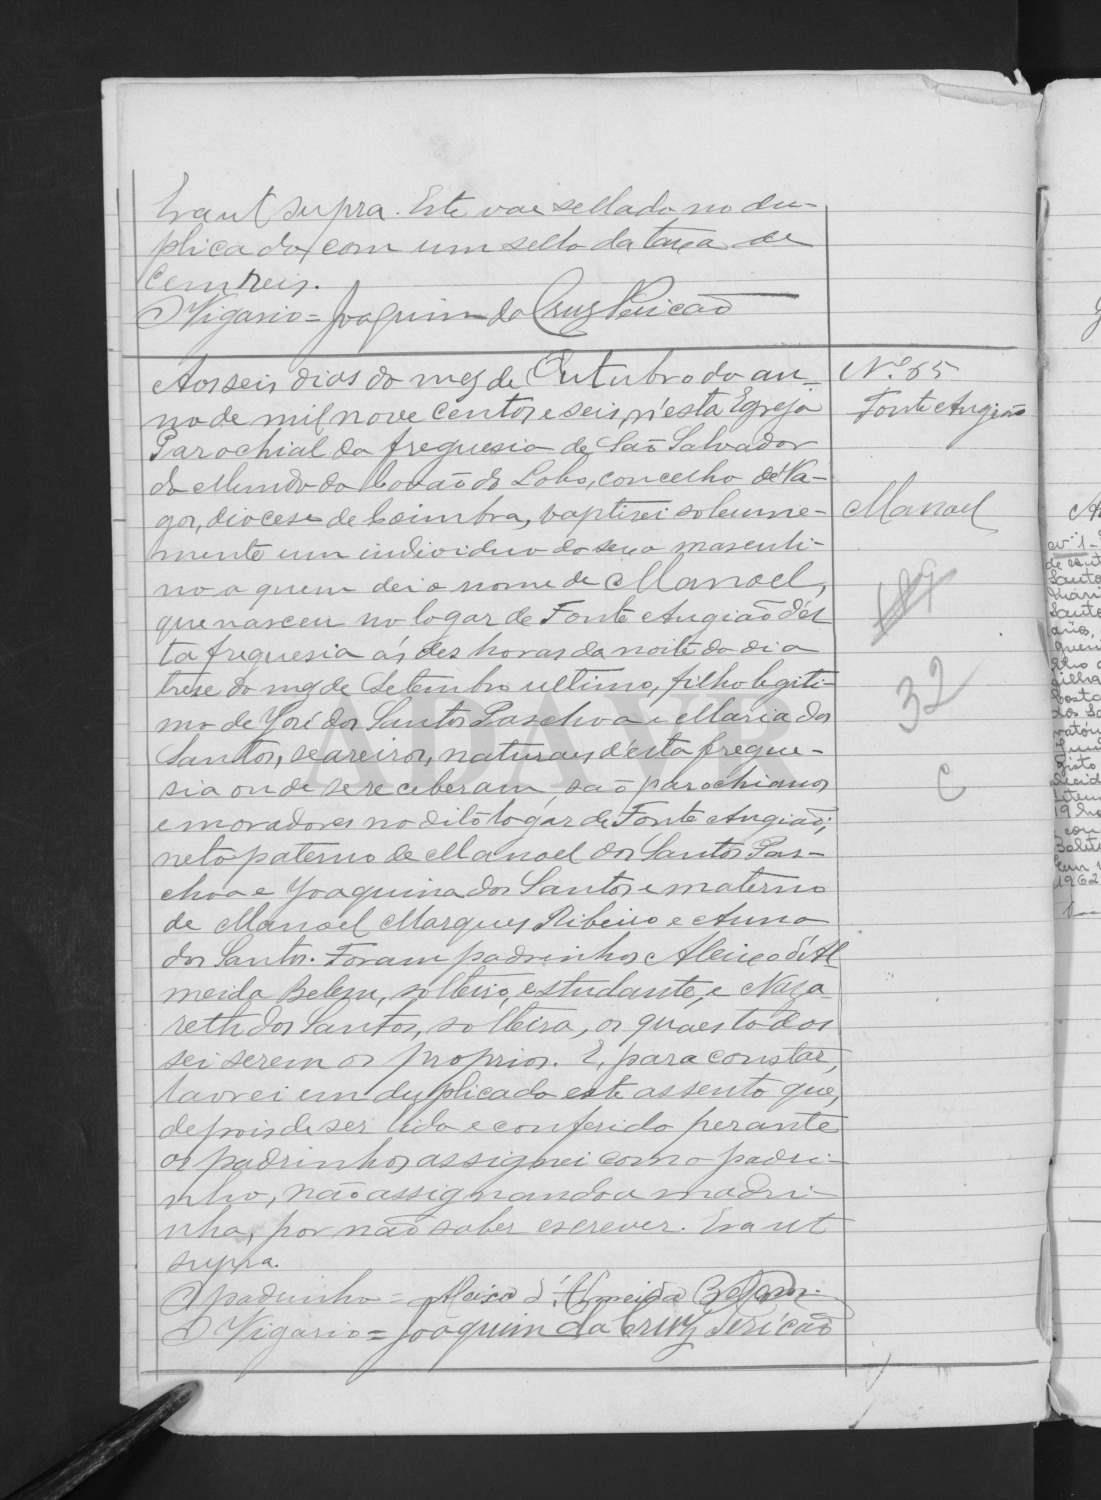 Era ut supra. Este vae sellado no du-
plicado com um sello da taxa de
cem reis.
O Vigario = Joaquim da Cruz Pericão
Aos seis dias do mez de Outubro do an-
no de mil nove centos e seis, n'esta Egreja
Parochial da freguesia de São Salvador
do Mundo do Covão do Lobo, concelho de Va-
gos, diocese de Coimbra, baptisei solemne-
mente um individuo do sexo masculi-
no a quem dei o nome de Manoel,
que nasceu no logar de Fonte Angião d'es
ta freguesia ás des horas da noite do dia
trese do mez de Setembro ultimo, filho legiti-
mo de José dos Santos Paschoa e Maria dos
Santos, seareiros, naturaes d'esta fregue-
sia onde se receberam, são parochianos
e moradores no dito logar de Fonte Angião;
neto paterno de Manoel dos Santos Pas-
choa e Joaquina dos Santos e materno
de Manoel Marques Ribeiro e Anna
dos Santos. Foram padrinhos Aleixo d'Al
meida Belem, solteiro, estudante, e Naza-
reth dos Santos, solteira, os quaes todos
sei serem os proprios. E, para constar,
lavrei em duplicado este assento que,
depois de ser lido e conferido perante
os padrinhos assignei com o padri-
nho, não assignando a madri-
nha, por não saber escrever. Era ut
supra.
O padrinho = Aleixo d'Almeida Belem.
O Vigario = Joaquim da Cruz Pericão
N.º 65
Fonte Angião
Manoel
32
C
ADAVR